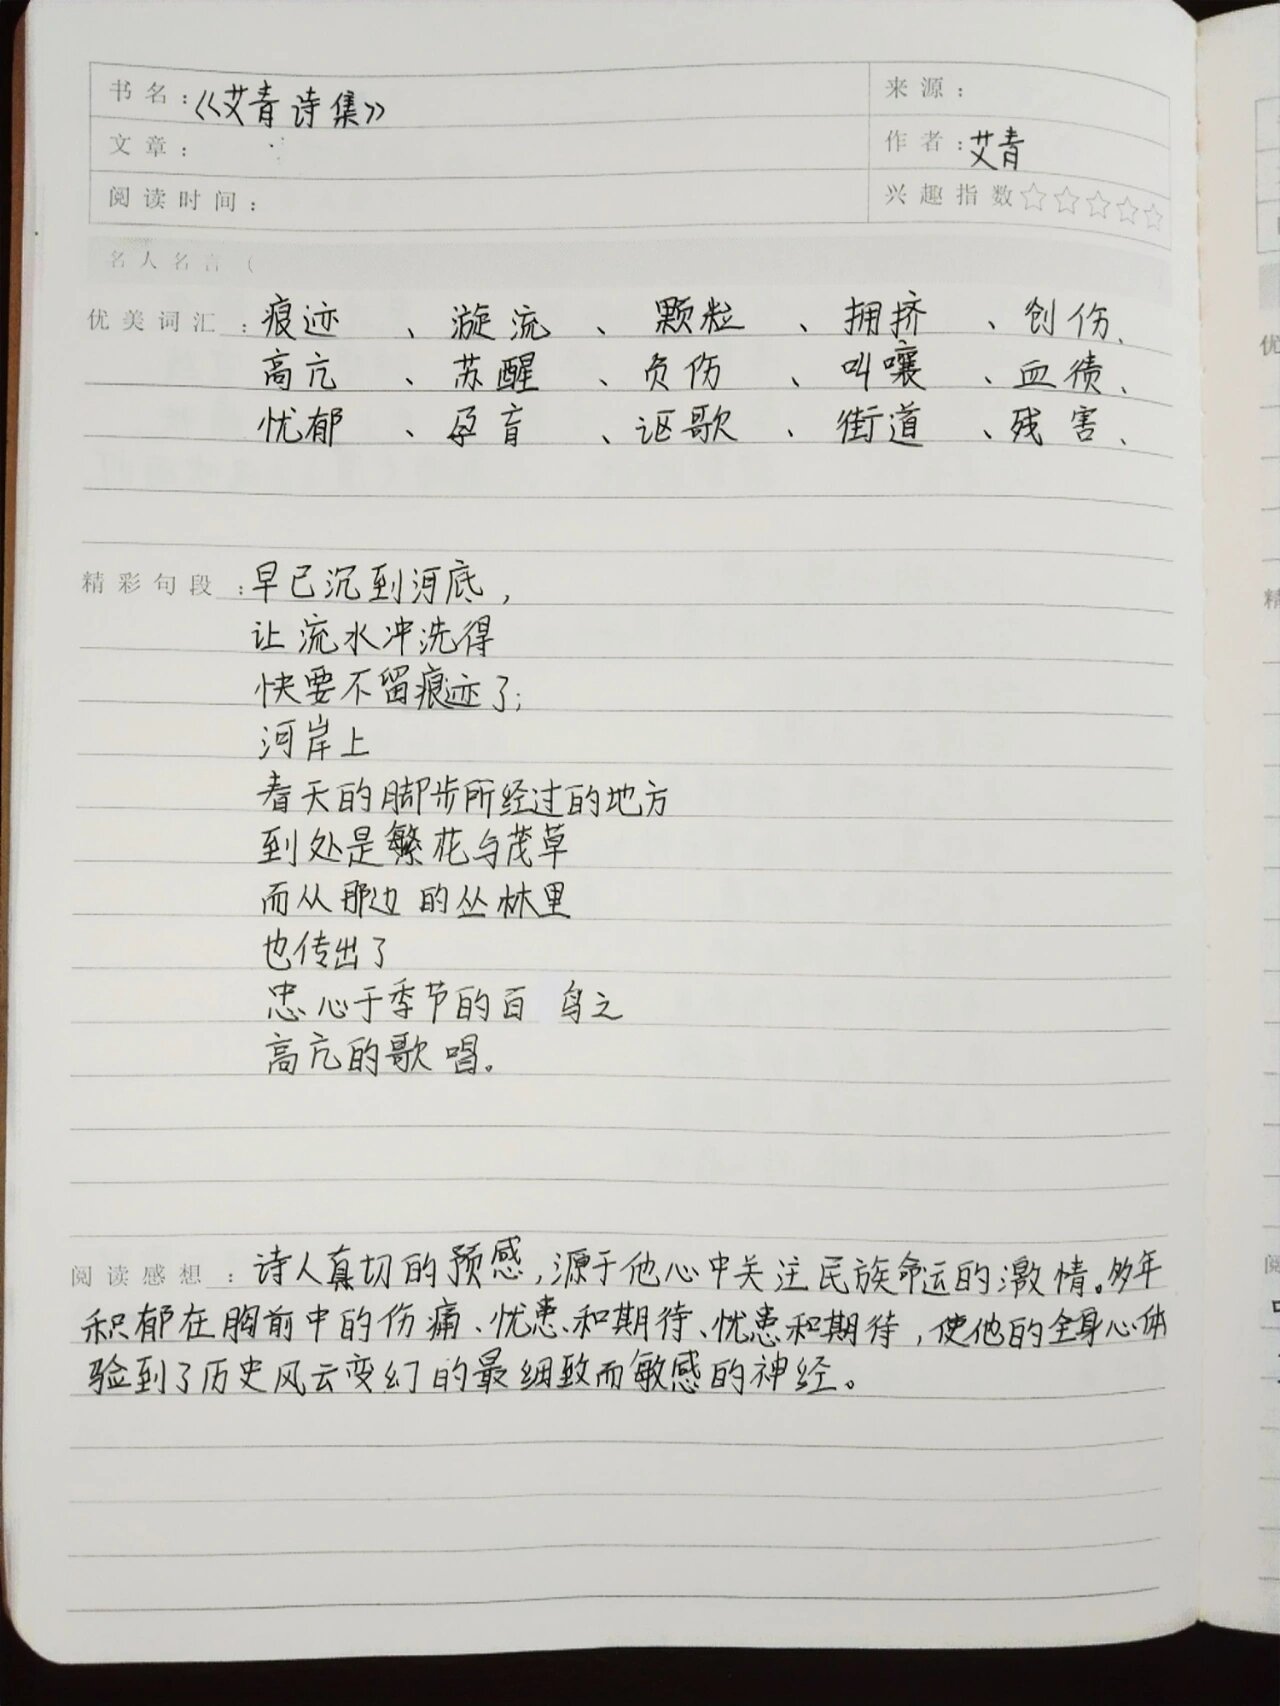 书名：《艾青诗集》
来源：
文章：
作者：艾青
阅读时间：
兴趣指数☆☆☆☆☆
名人名言（
优美词汇：痕迹、漩流、颗粒、拥挤、创伤、
高亢、苏醒、负伤、叫嚷、血债、
忧郁、孕育、讴歌、街道、残害、
精彩句段：早已沉到河底，
让流水冲洗得
快要不留痕迹了；
河岸上
春天的脚步所经过的地方
到处是繁花与茂草
而从那边的丛林里
也传出了
忠心于季节的百鸟之
高亢的歌唱。
阅读感想：诗人真切的预感，源于他心中关注民族命运的激情。多年
积郁在胸前中的伤痛、忧患、和期待、忧患和期待，使他的全身心体
验到了历史风云变幻的最细致而敏感的神经。